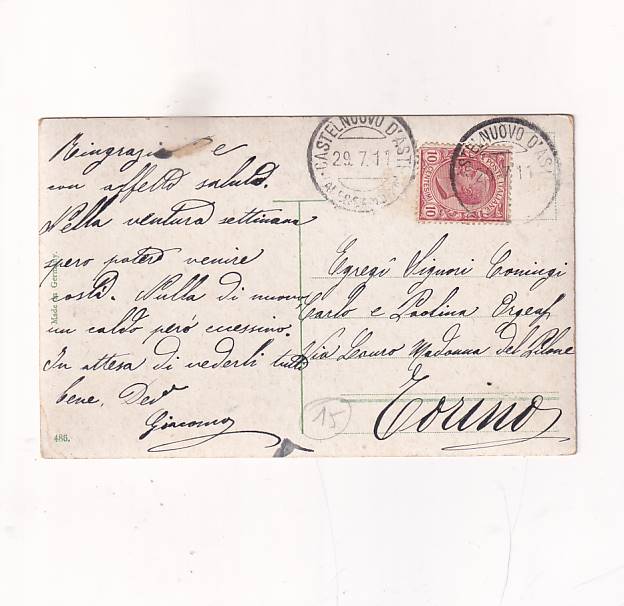 Ringrazio e
con affetto saluto.
Nella ventura settimana
spero poter venire
costì. Nulla di nuovo
un caldo però eccessivo.
In attesa di vederli tutti
bene, Devo
Giacomo
Made in Germany.
486.
CASTELNUOVO D'ASTI
29.7.11
POSTE ITALIANE
CENTESIMI
10
10
CASTELNUOVO D'ASTI
7.11
Egregi Signori Coniugi
Carlo e Paolina
Via Lauro Madonna del Pilone
Torino
15